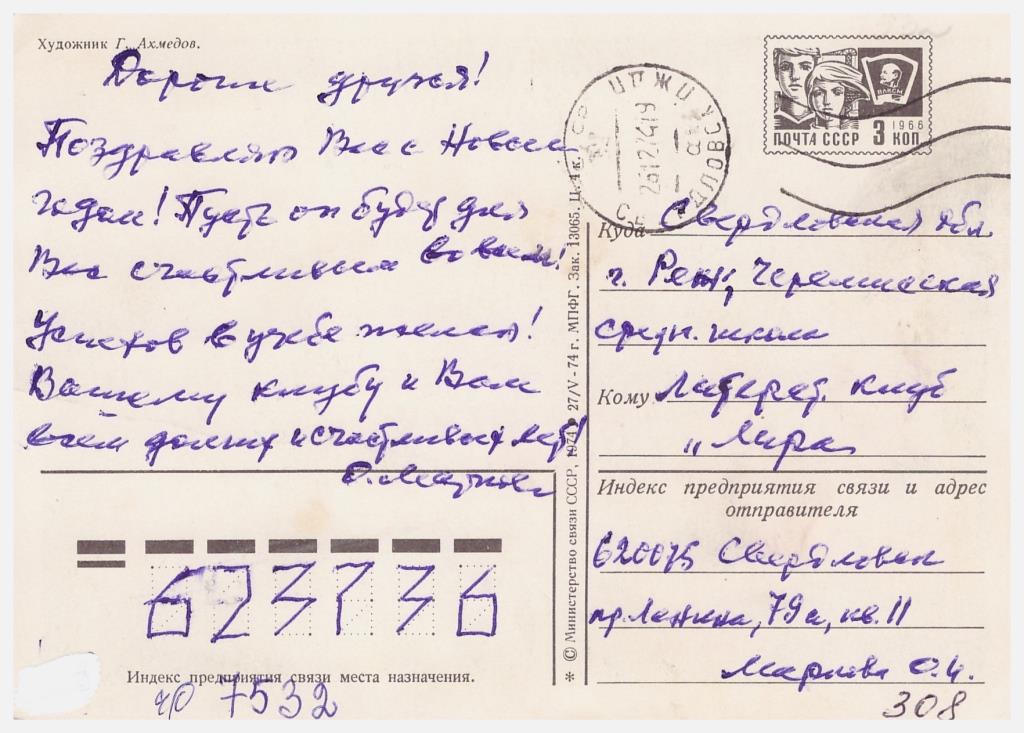 Художник Г. Ахмедов.
Дорогие друзья!
Поздравляю Вас с Новым
годом! Пусть он будет для
Вас счастливым во всём!
Успехов в учёбе желаю!
Вашему клубу и Вам
всем долгих и счастливых лет!
О. Маркова
ПОЧТА СССР 3 КОП. 1966
ВЛКСМ
Куда Свердловская обл.
г. Реж, Черемисская
средн. школа
Кому Литерат. клуб
„Лира"
Индекс предприятия связи и адрес
отправителя
620075 Свердловск
пр. Ленина, 79а, кв. 11
Маркова О.И.
308
623736
Индекс предприятия связи места назначения.
чр 7532
* © Министерство связи СССР, 1974 • 27/V - 74 г. МПФГ. Зак. 13065. Ц. 4 к.